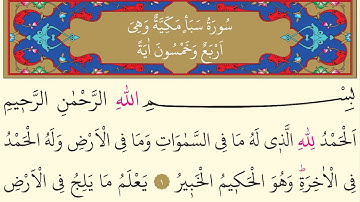 سُورَةُ سَبَأٍ مَكِّيَّةٌ وَهِيَ
اَرْبَعٌ وَخَمْسُونَ اٰيَةً
بِسْمِ اللّٰهِ الرَّحْمٰنِ الرَّحٖيمِ
اَلْحَمْدُ لِلّٰهِ الَّذٖي لَهُ مَا فِي السَّمٰوَاتِ وَمَا فِي الْاَرْضِ وَلَهُ الْحَمْدُ
فِي الْاٰخِرَةِؕ وَهُوَ الْحَكٖيمُ الْخَبٖيرُ ﴿١﴾ يَعْلَمُ مَا يَلِجُ فِي الْاَرْضِ